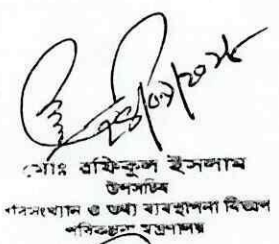 মোঃ রফিকুল ইসলাম
উপসচিব
পরিসংখ্যান ও তথ্য ব্যবস্থাপনা বিভাগ
পরিকল্পনা মন্ত্রণালয়